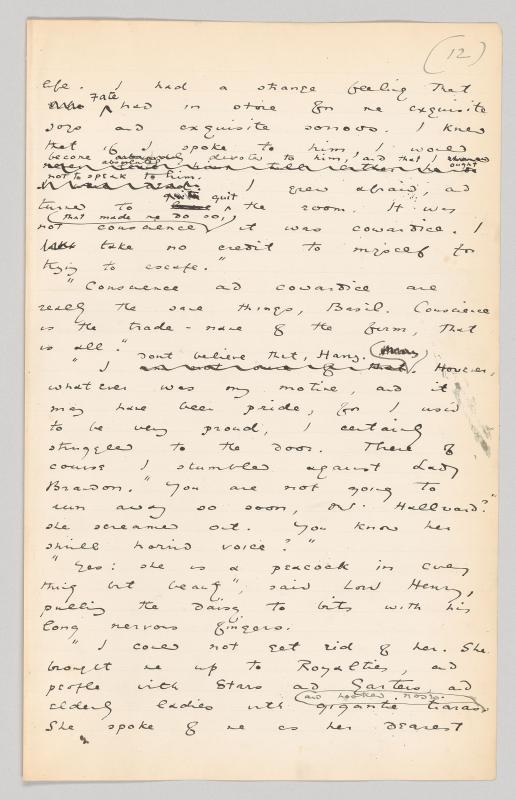 (12)
life. I had a strange feeling that
Fate had in store for me exquisite
joys and exquisite sorrows. I knew
that if I spoke to him I would
become absolutely devoted to him, and that I ought
not to speak to him.
I grew afraid, and
turned to quit the room. It was
not conscience that made me do so, it was cowardice. I
take no credit to myself for
trying to escape."
"Conscience and cowardice are
really the same things, Basil. Conscience
is the trade-name of the firm, that
is all."
"I don't believe that, Harry. However,
whatever was my motive, and it
may have been pride, for I used
to be very proud, I certainly
struggled to the door. There of
course I stumbled against Lady
Brandon. "You are not going to
run away so soon, Mr. Hallward?"
she screamed out. You know her
shrill horrid voice?"
"Yes: she is a peacock in every
thing but beauty", said Lord Henry,
pulling the daisy to bits with his
long nervous fingers.
"I could not get rid of her. She
brought me up to Royalties, and
people with Stars and Garters, and
elderly ladies with gigantic tiaras and hooked noses.
She spoke of me as her dearest